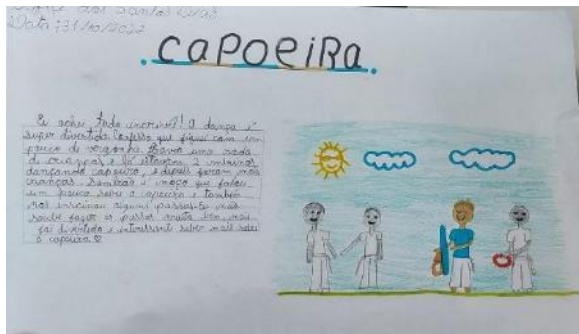 dos Santos
Data: 31/10/2022
CAPOEIRA
Eu achei tudo incrível! A dança é
super divertida. Confesso que fiquei com um
pouco de vergonha. Havia uma roda
de crianças e lá estavam 2 meninos
dançando capoeira, e depois foram mais
crianças. o moço que falou
um pouco sobre a capoeira e também
nos ensinou alguns passos. Eu não
soube fazer os passos muito bem, mas
foi divertido e interessante saber mais sobre
a capoeira.